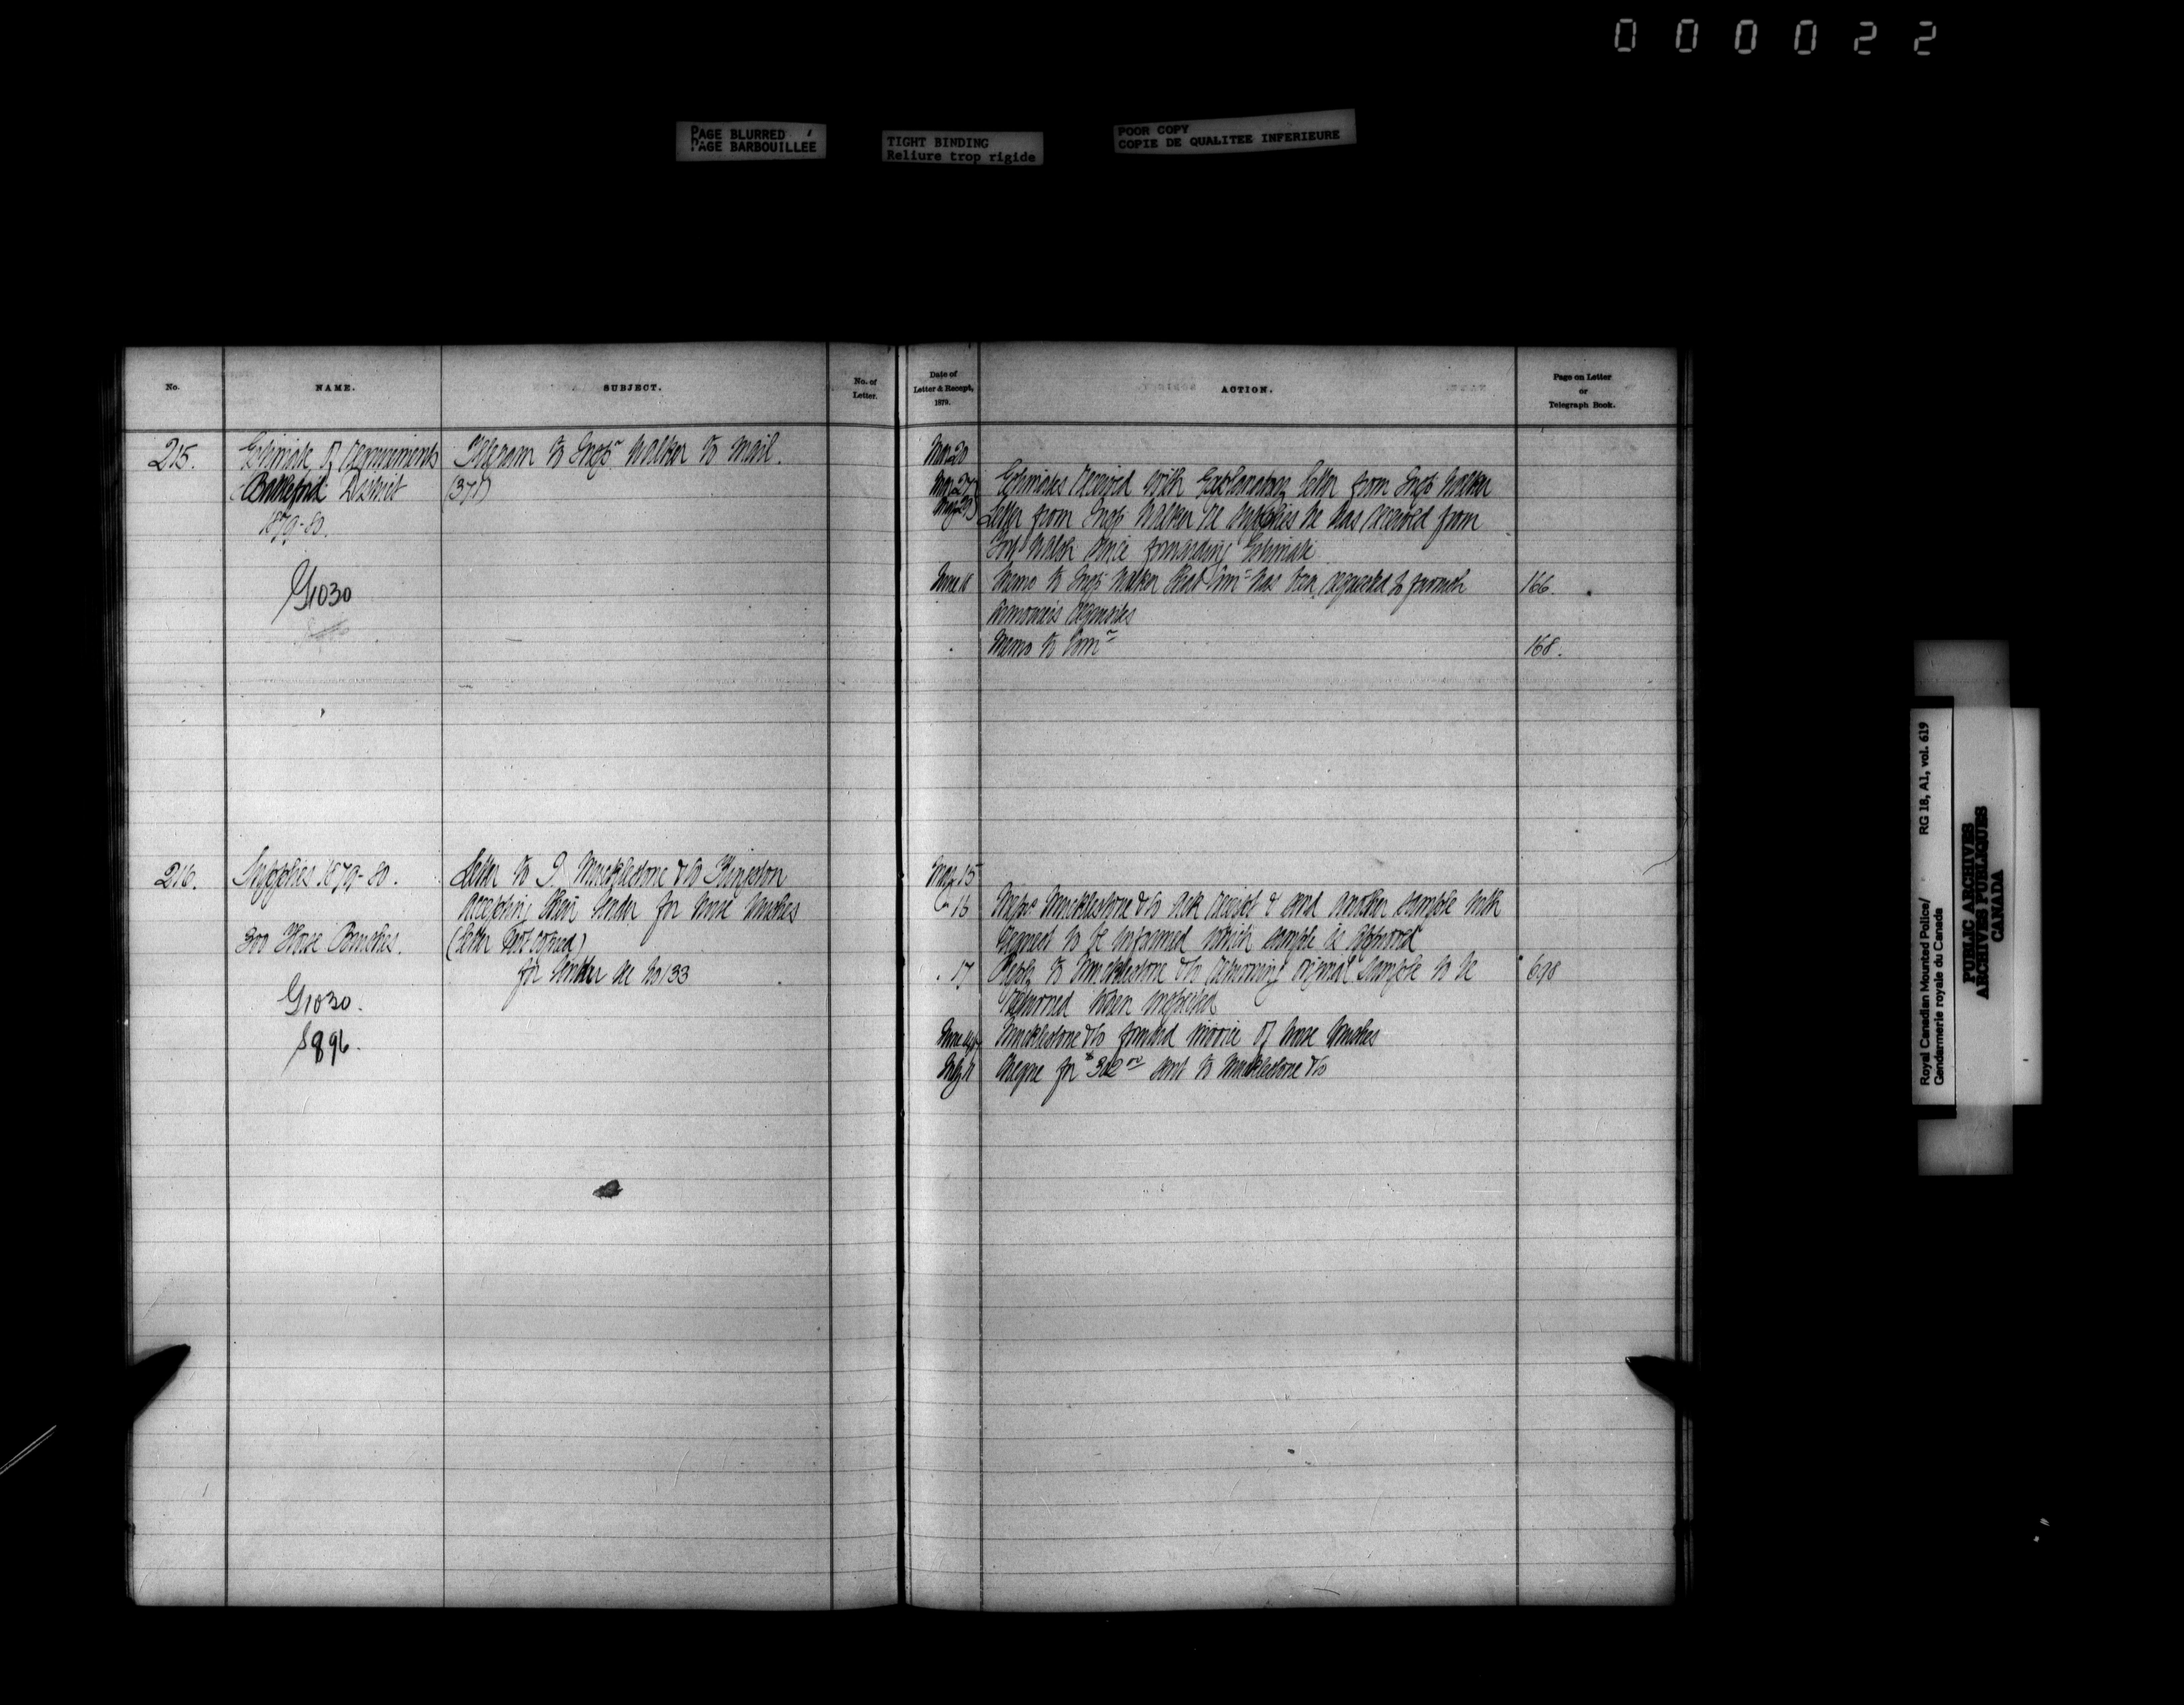 000022
PAGE BLURRED
PAGE BARBOUILLEE
TIGHT BINDING
Reliure trop rigide
POOR COPY
COPIE DE QUALITEE INFERIEURE
No.
NAME.
SUBJECT.
No. of
Letter.
Date of
Letter & Receipt,
1879.
ACTION.
Page on Letter
or
Telegraph Book.
215.
Estimate of requirements
Battleford District
1879-80.
G1030
Telegram to Insp. Walker to mail.
(377)
May 20
May 27 Estimates received with Explanatory letter from Insp Walker
May 29 Letter from Insp Walker re supplies he has received from
Fort Walsh since forwarding Estimate
June 18 Memo to Insp Walker that Comr has been requested to furnish 166.
Armourer's requisites
Memo to Comr 168.
216.
Supplies 1879-80.
300 Horse Brushes.
G1030.
S896.
Letter to Mucklestone & Co Kingston
accepting their tender for horse brushes
(letter not copied)
for tender see No 133
May 15
16 Messrs Mucklestone & Co ack receipt & send another sample with
request to be informed which sample is approved
17 Reply to Mucklestone & Co returning original sample to be 698
returned when inspected
June Mucklestone & Co forward invoice of horse brushes
July 11 Cheque for $302 sent to Mucklestone & Co
Royal Canadian Mounted Police/ RG 18, A1, vol. 619
Gendarmerie royale du Canada
PUBLIC ARCHIVES
ARCHIVES PUBLIQUES
CANADA